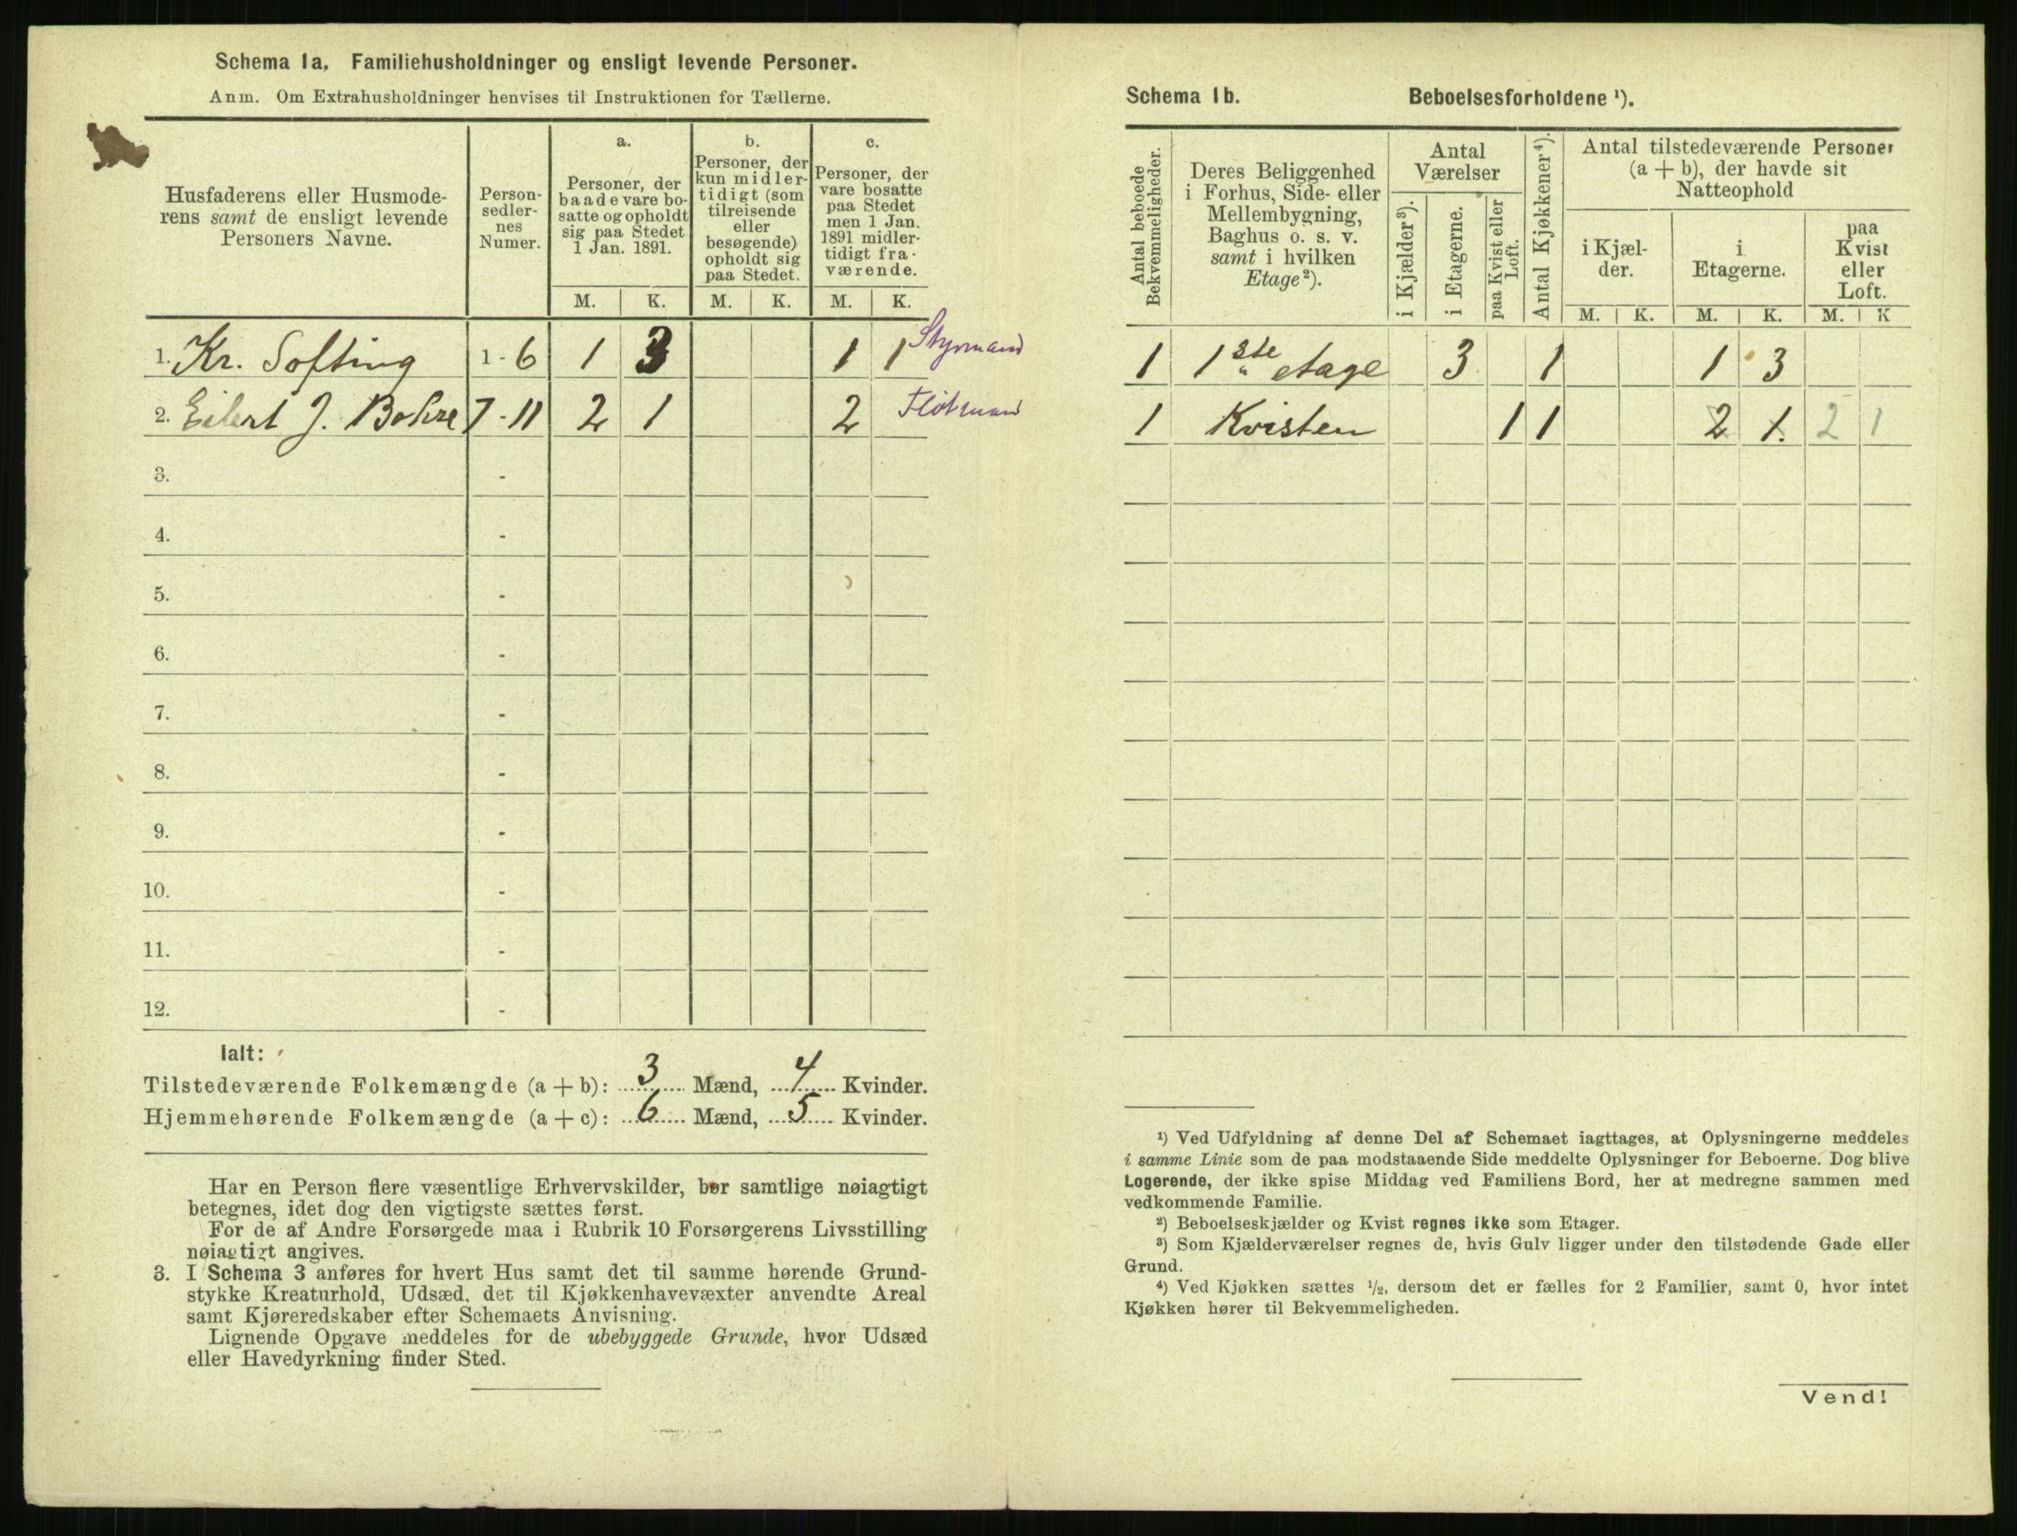 Schema 1a, Familiehusholdninger og ensligt levende Personer.
Anm. Om Extrahusholdninger henvises til Instruktionen for Tællerne.
Husfaderens eller Husmode-
rens samt de ensligt levende
Personers Navne.
Person-
sedler-
nes
Numer.
a.
Personer, der
baade vare bo-
satte og opholdt
sig paa Stedet
1 Jan. 1891.
b.
Personer, der
kun midler-
tidigt (som
tilreisende
eller
besøgende)
opholdt sig
paa Stedet.
c.
Personer, der
vare bosatte
paa Stedet
men 1 Jan.
1891 midler-
tidigt fra-
værende.
M. K. M. K. M. K.
1. Kr. Softing 1-6 1 3 1 1 Styrmand
2. Eilert J. 7-11 2 1 2
3. -
4. -
5. -
6. -
7. -
8. -
9. -
10. -
11. -
12. -
Ialt:
Tilstedeværende Folkemængde (a + b): 3 Mænd, 4 Kvinder.
Hjemmehørende Folkemængde (a + c): 6 Mænd, 5 Kvinder.
Har en Person flere væsentlige Erhvervskilder, bør samtlige nøiagtigt
betegnes, idet dog den vigtigste sættes først.
For de af Andre Forsørgede maa i Rubrik 10 Forsørgerens Livsstilling
nøiagtigt angives.
3. I Schema 3 anføres for hvert Hus samt det til samme hørende Grund-
stykke Kreaturhold, Udsæd, det til Kjøkkenhavevæxter anvendte Areal
samt Kjøreredskaber efter Schemaets Anvisning.
Lignende Opgave meddeles for de ubebyggede Grunde, hvor Udsæd
eller Havedyrkning finder Sted.
Schema 1b. Beboelsesforholdene ¹).
Antal beboede
Bekvemmeligheder.
Deres Beliggenhed
i Forhus, Side- eller
Mellembygning,
Baghus o. s. v.
samt i hvilken
Etage²).
Antal
Værelser
i Kjælder³).
i Etagerne.
paa Kvist eller
Loft.
Antal Kjøkkener⁴).
Antal tilstedeværende Personer
(a + b), der havde sit
Natteophold
i Kjæl-
der.
i
Etagerne.
paa
Kvist
eller
Loft.
M. K. M. K. M. K
1 1ste etage 3 1 1 3
1 Kvisten 1 1 2 1. 2 1
¹) Ved Udfyldning af denne Del af Schemaet iagttages, at Oplysningerne meddeles
i samme Linie som de paa modstaaende Side meddelte Oplysninger for Beboerne. Dog blive
Logerende, der ikke spise Middag ved Familiens Bord, her at medregne sammen med
vedkommende Familie.
²) Beboelseskjælder og Kvist regnes ikke som Etager.
³) Som Kjælderværelser regnes de, hvis Gulv ligger under den tilstødende Gade eller
Grund.
⁴) Ved Kjøkken sættes ½, dersom det er fælles for 2 Familier, samt 0, hvor intet
Kjøkken hører til Bekvemmeligheden.
Vend!